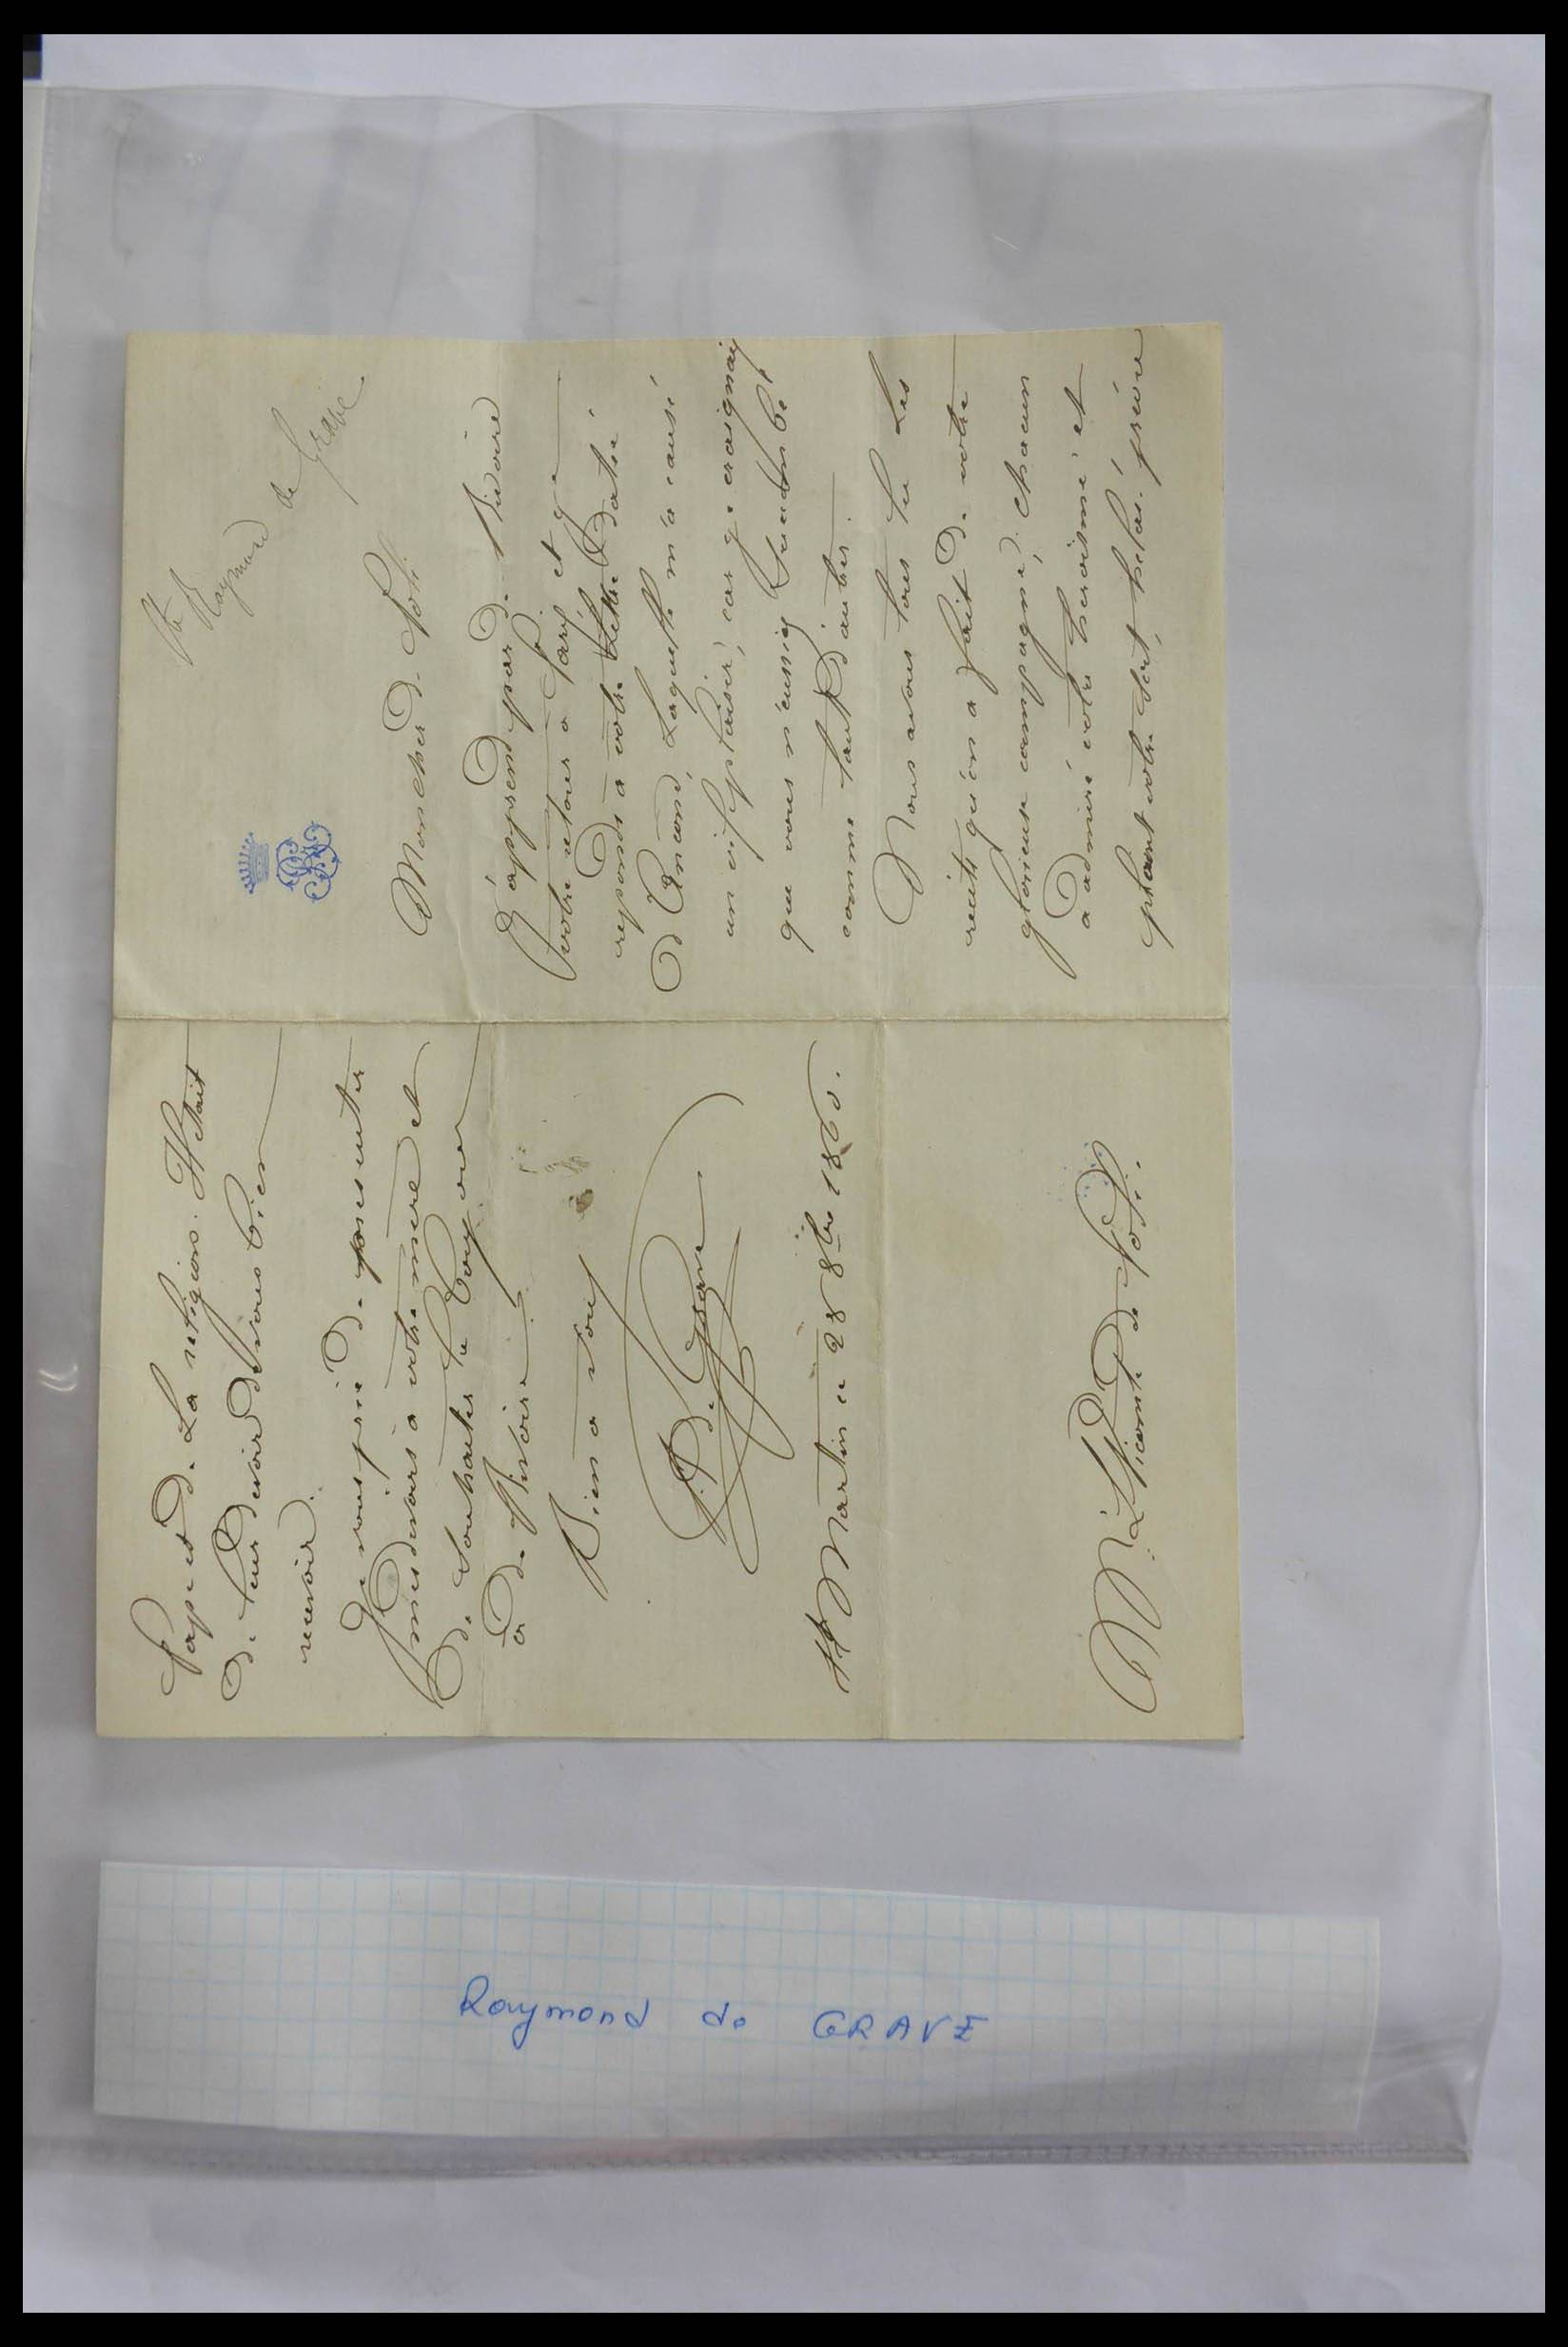 Raymond de Grave
Mon cher de Poli.
J'apprend par de Rivoire
votre retour a Paris et je
reponds a votre lettre datée
d'Ancone, laquelle m'a causé
un vif plaisir, car je craignais
que vous n'eussiez succombé
comme tant d'autres.
Nous avons tous lu les
recits qu'on a fait de votre
glorieuse campagne, chacun
a admiré votre heroisme et
plaint votre sort, helas! prévu
Pape et de la religion. Il était
de leur devoir de vous bien
recevoir.
Je vous prie de presenter
mes devoirs a votre mere et
de souhaiter le bonjour
a de Rivoire.
Bien a vous
R. de Grave
St Martin ce 28 8bre 1860.
M. Le Vicomte de Poli.
Raymond de GRAVE